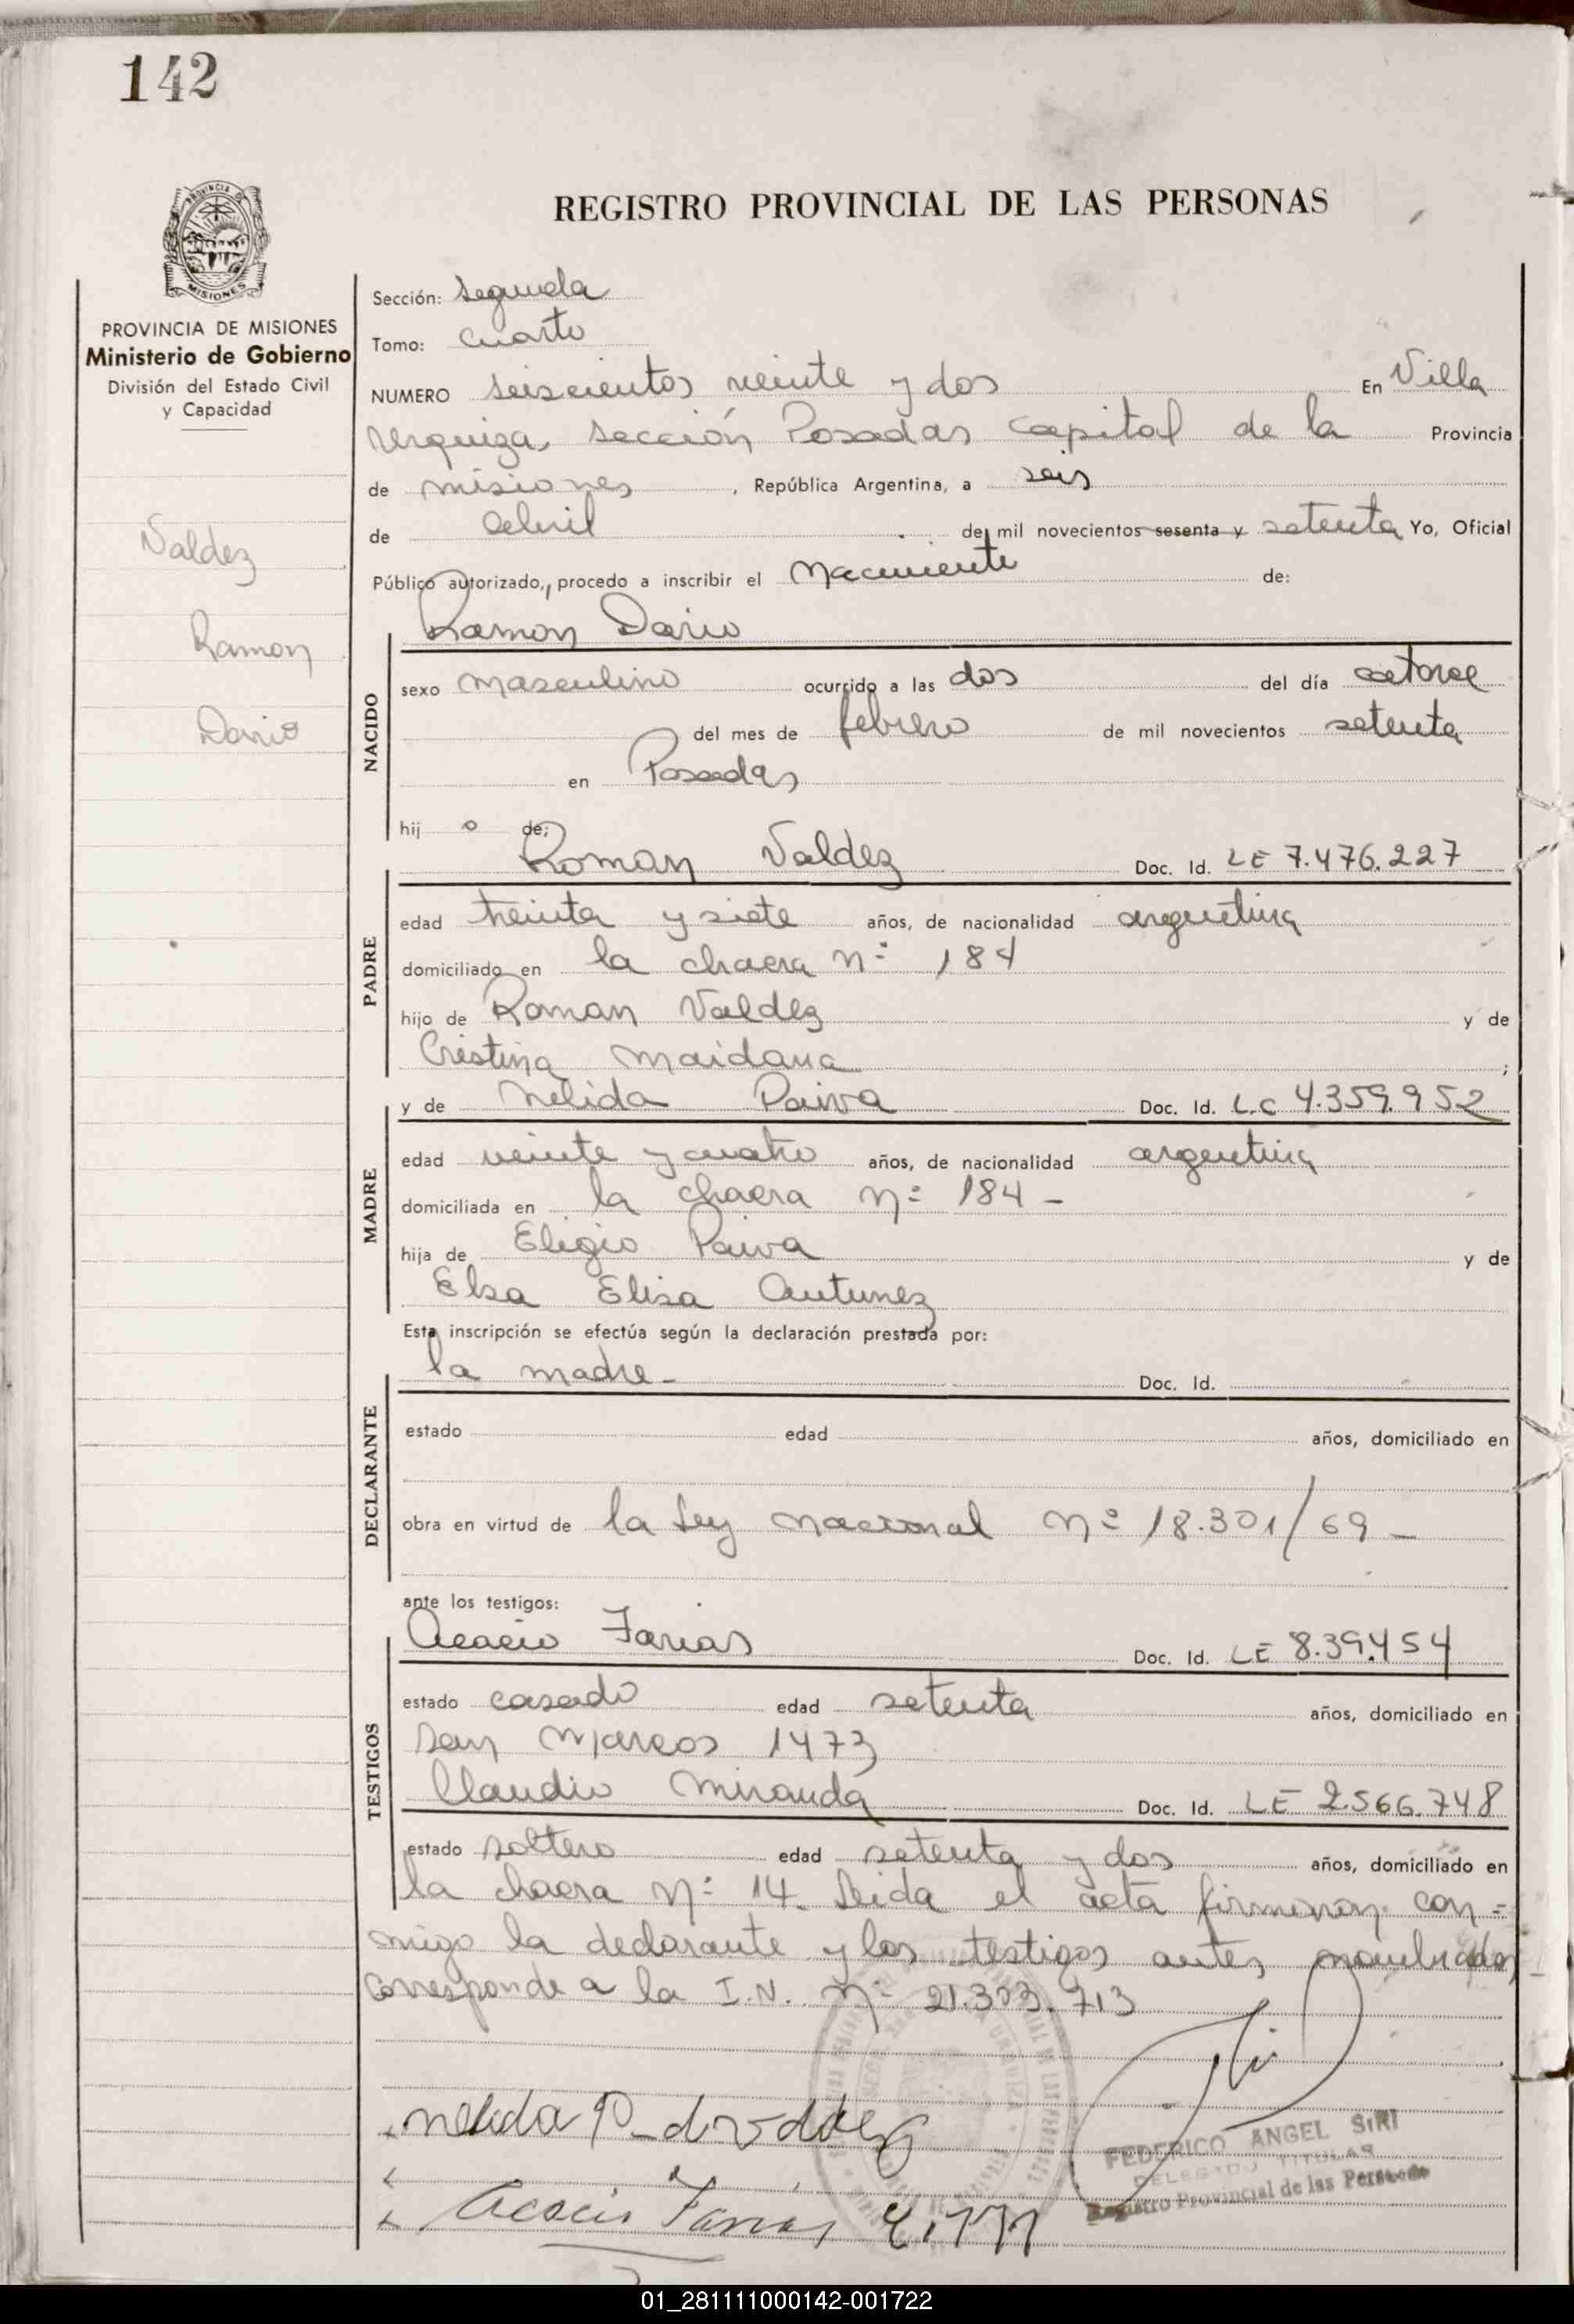 142
PROVINCIA DE MISIONES
REGISTRO PROVINCIAL DE LAS PERSONAS
PROVINCIA DE MISIONES
Ministerio de Gobierno
División del Estado Civil
y Capacidad
Valdez
Ramon
Dario
Sección: segunda
Tomo: cuarto
NUMERO seiscientos veinte y dos En Villa
Urquiza, sección Posadas capital de la Provincia
de misiones, República Argentina, a seis
de abril de mil novecientos sesenta y setenta Yo, Oficial
Público autorizado, procedo a inscribir el nacimiento de:
Ramon Dario
NACIDO
sexo masculino ocurrido a las dos del día catorce
del mes de febrero de mil novecientos setenta
en Posadas
hij o de:
Roman Valdez Doc. Id. LE 7.476.227
PADRE
edad treinta y siete años, de nacionalidad argentina
domiciliado en la chacra nº 184
hijo de Roman Valdez y de
Cristina maidana;
y de Nelida Paiva Doc. Id. L.C 4.359.952
MADRE
edad veinte y cuatro años, de nacionalidad argentina
domiciliada en la chacra nº 184 -
hija de Eligio Paiva y de
Elsa Elisa Antunez
Esta inscripción se efectúa según la declaración prestada por:
la madre- Doc. Id.
DECLARANTE
estado edad años, domiciliado en
obra en virtud de la Ley nacional nº 18.301/69 -
ante los testigos:
Acacio Farias Doc. Id. LE 8.39.454
TESTIGOS
estado casado edad setenta años, domiciliado en
san Marcos 1473
Claudio Miranda Doc. Id. LE 2.566.748
estado soltero edad setenta y dos años, domiciliado en
la chacra nº 14. Leida el acta firmaron con=
migo la declarante y los testigos antes nombrados
corresponde a la I.N. nº 21.303.713
nelida P_ de valdez
FEDERICO ANGEL SIRI
DELEGADO TITULAR
Registro Provincial de las Personas
Acacio Farias
01_281111000142-001722